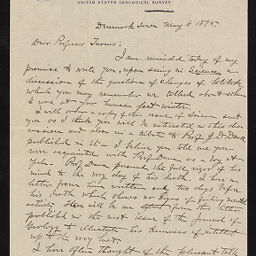 UNITED STATES GEOLOGICAL SURVEY
Denmark Iowa May 6 1895
Dear Professor Turner:
I am reminded today of my
promise to write you, upon seeing in Science a
discussion of the question of changes of
which you may remember we talked about when
I was at your house last winter.
I will a copy of the issue of Science sent
you as I think you will be interested in this dis-
cussion and also in a tribute to Prof. J. D. Dana
published in it — I believe you told me you
were acquainted with Prof. Dana as a boy at
Yale. Prof. Dana preserved the full vigor of his
mind to the very day of his death. I have a
letter from him written only two days before
his death which shows no signs of failing mental
activity. Here will be an from this letter
published in the next issue of the Journal of
Geology to illustrate his of intellect
up to the very last.
I have often thought of the pleasant talk